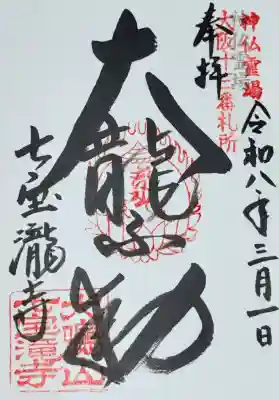 神仏霊場
大阪十三番札所
奉拝
令和八年三月一日
大龍不動
七宝瀧寺
犬鳴山